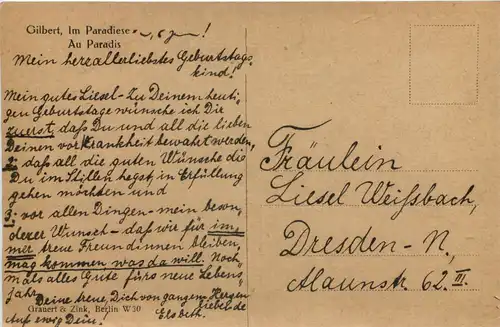 Gilbert, Im Paradiese
Au Paradis
Mein herzallerliebstes Geburtstags-
kind!
Mein gutes Liesel – Zu Deinem heuti-
gen Geburtstage wünsche ich Dir
zuerst, daß Du und all die lieben
Deinen vor Krankheit bewahrt werden,
2. daß all die guten Wünsche die
Du im Stillen hegst, in Erfüllung
gehen möchten und
3. vor allen Dingen – mein beson-
derer Wunsch – daß wir für im-
mer treue Freundinnen bleiben,
mag kommen was da will. Noch-
mals alles Gute fürs neue Lebens-
jahr.
Deine treue, Dich von ganzem Herzen
liebende
Auf ewig Dein! Elsbeth.
Grauert & Zink, Berlin W30
Fräulein
Liesel Weißbach,
Dresden-N.,
Alaunstr. 62. III.